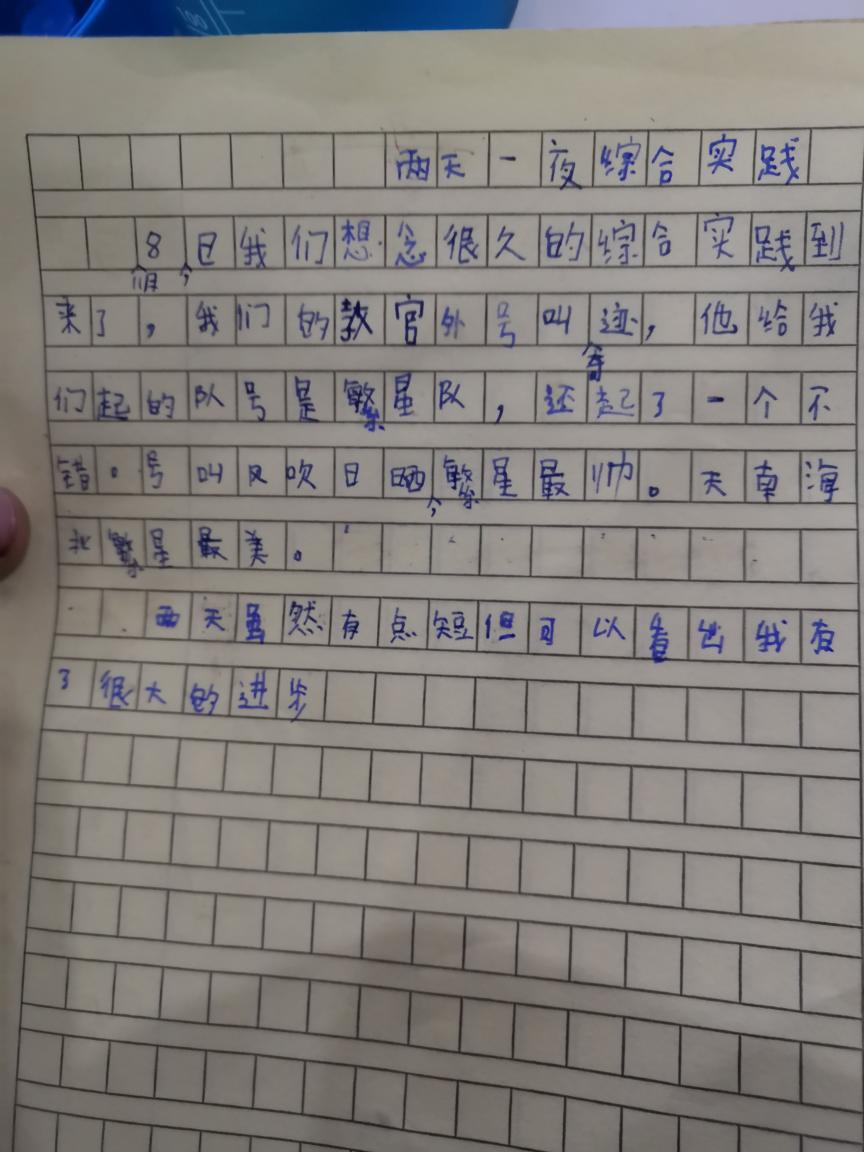 两天一夜综合实践
8日我们想念很久的综合实践到
来了，我们的教官外号叫迹，他给我
们起的队号是繁星队，还起了一个不
错。号叫风吹日晒繁星最帅。天南海
北繁星最美。
两天虽然有点短但可以看出我有
了很大的进步